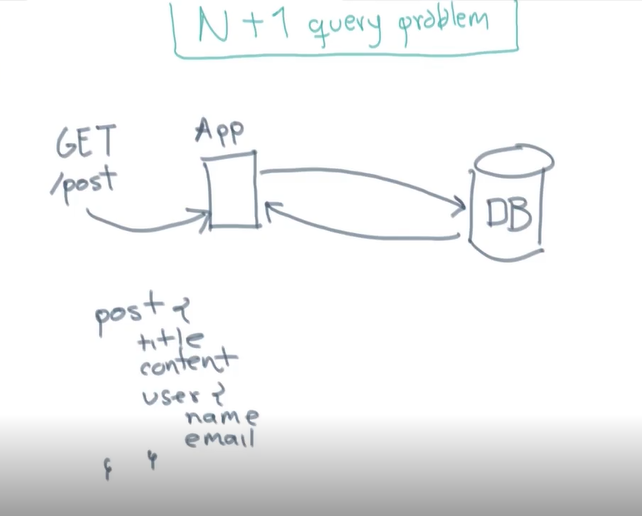 N+1 query problem
GET
/post
App
DB
post {
title
content
user {
name
email
} }